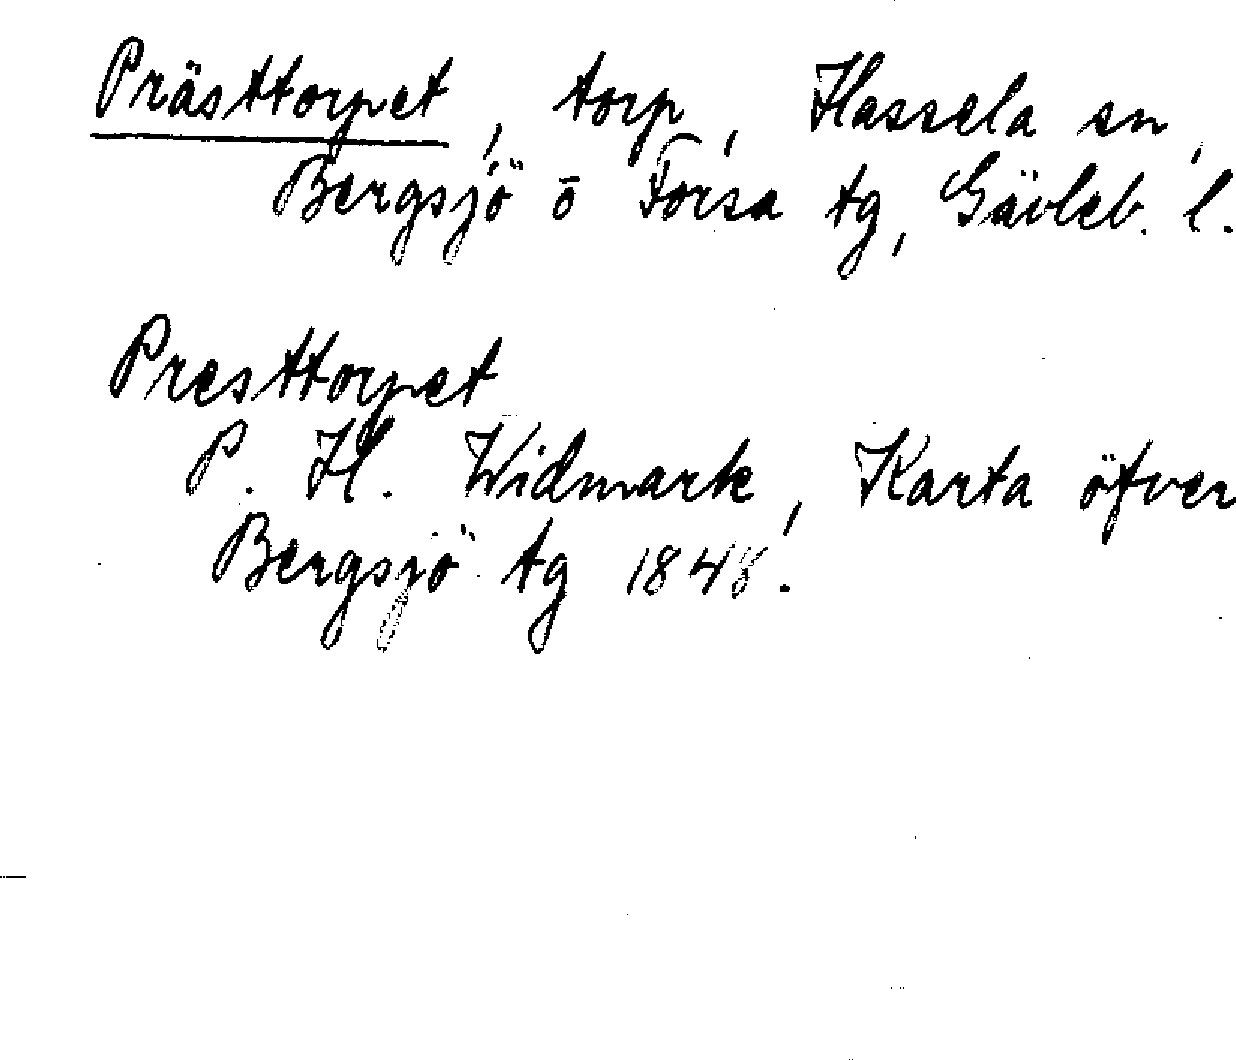 Prästtorpet, torp, Hassela sn,
Bergsjö o Forsa tg, Gävleb. l.
Presttorpet
P. H. Widmark, Karta öfver
Bergsjö tg 1848.